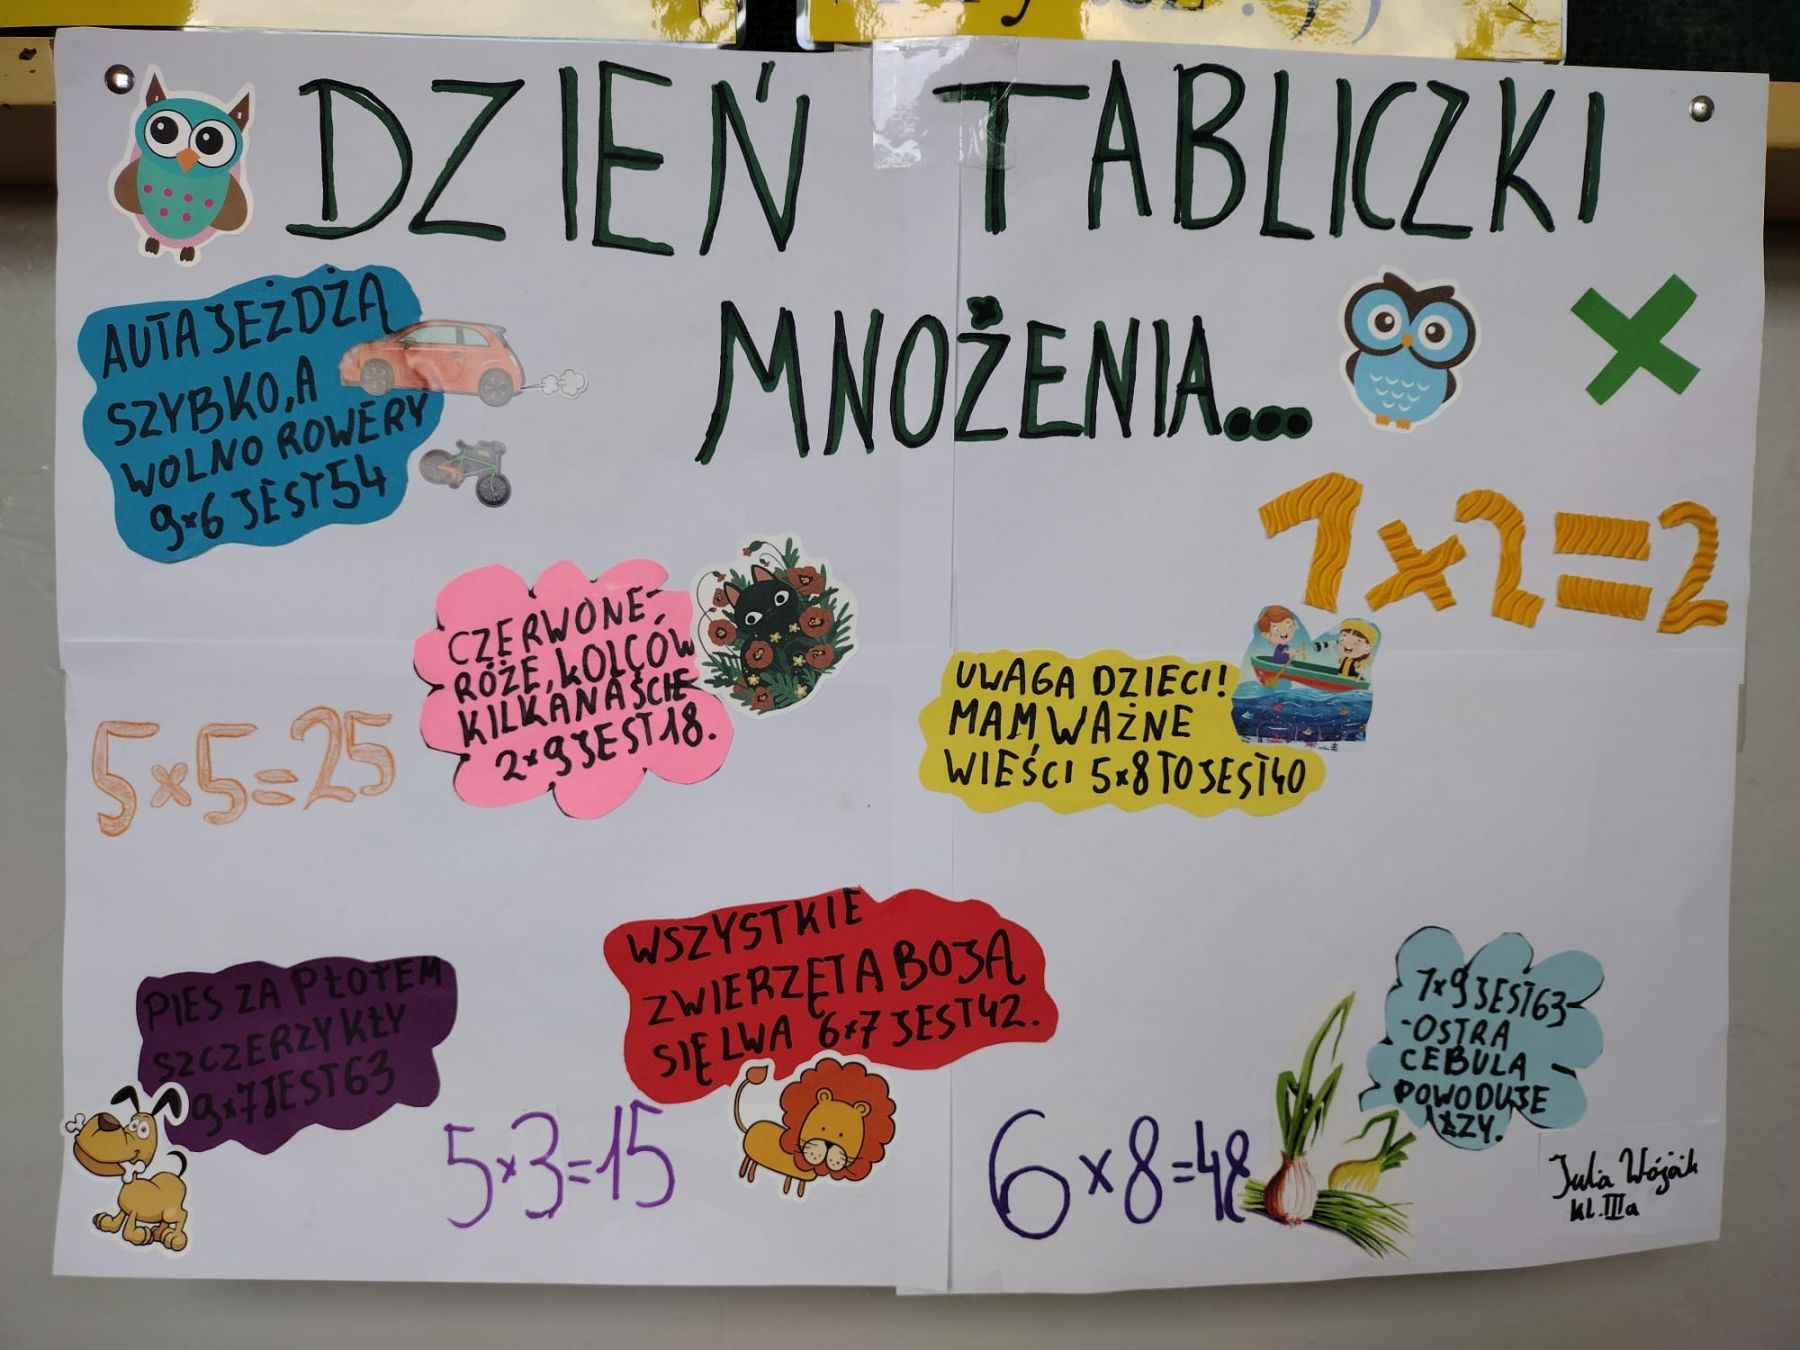 DZIEŃ TABLICZKI
MNOŻENIA...
AUTA JEŻDŻĄ
SZYBKO, A
WOLNO ROWERY
9×6 JEST 54
1×2=2
CZERWONE-
RÓŻE, KOLCÓW
KILKANAŚCIE
2×9 JEST 18.
UWAGA DZIECI!
MAM WAŻNE
WIEŚCI 5×8 TO JEST 40
5×5=25
WSZYSTKIE
ZWIERZĘTA BOJĄ
SIĘ LWA 6×7 JEST 42.
PIES ZA PŁOTEM
SZCZERZY KŁY
9×7 JEST 63
7×9 JEST 63-
-OSTRA
CEBULA
POWODUJE
ŁZY.
5×3=15
6×8=48
Julia Wójcik
kl. IIIa